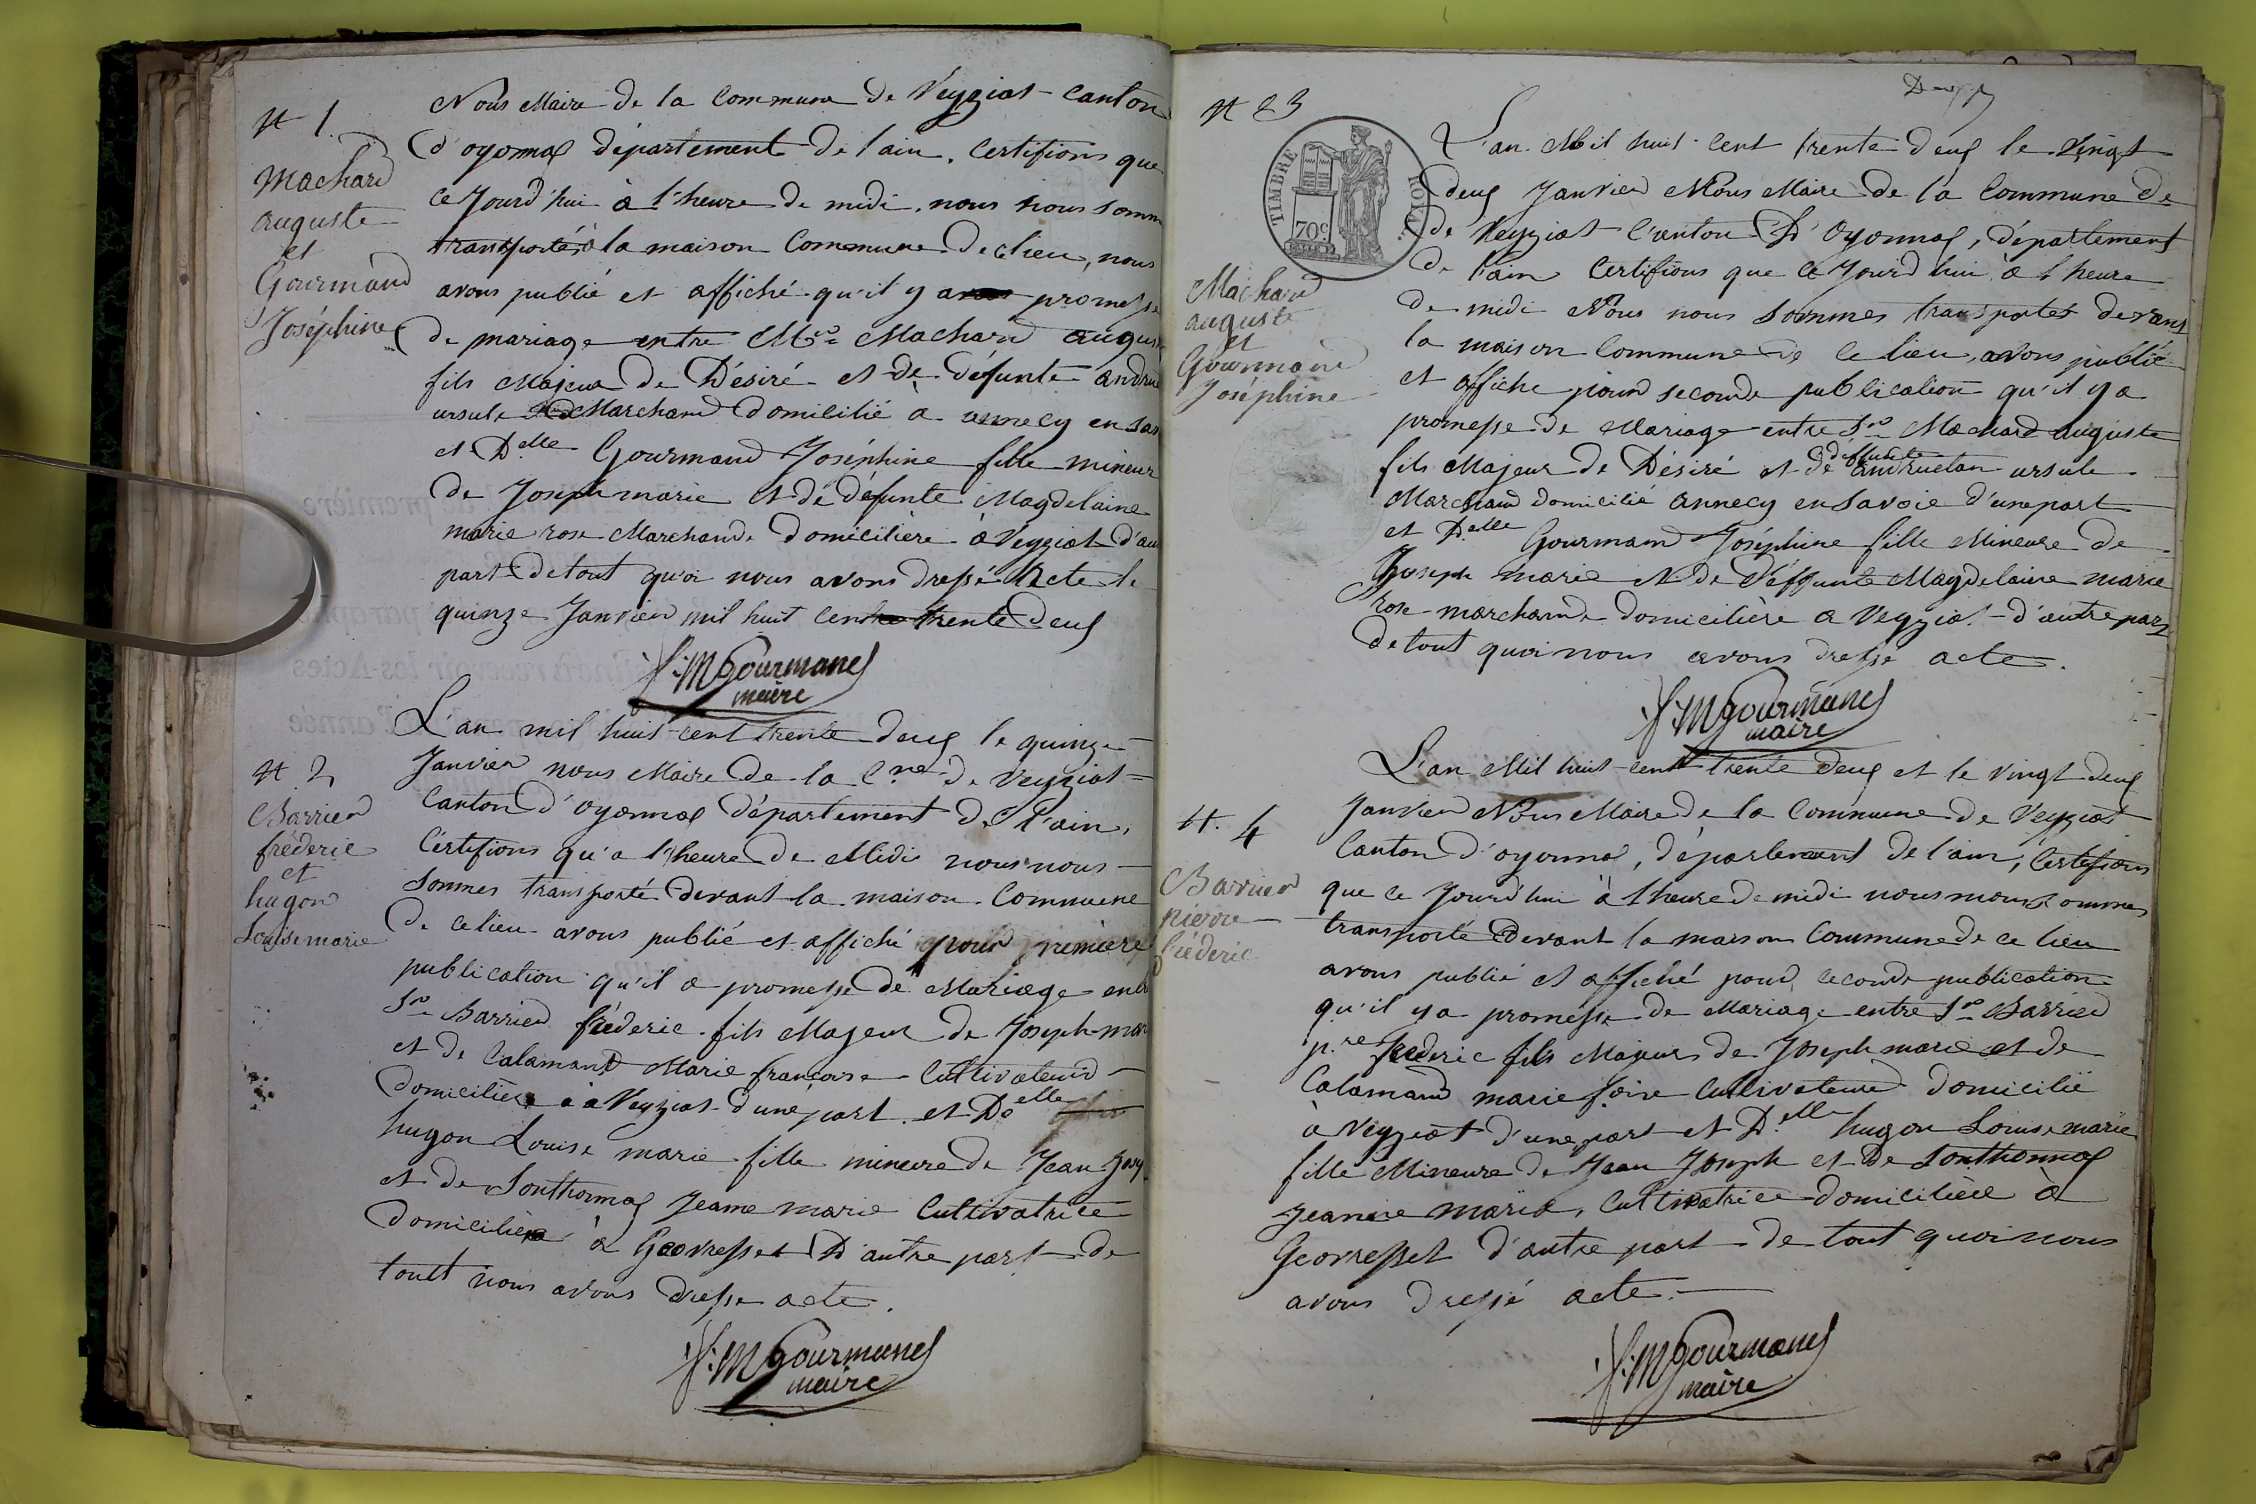 N 1.
Machard
auguste
et
Gourmand
Joséphine
Nous Maire de la Commune de Veyziat canton
d'oyonnax département de l'ain, Certifions que
ce Jourd'hui à l'heure de midi, nous nous somm
transporté à la maison Commune de ce lieu, nous
avons publié et affiché qu'il y a promesse
de mariage entre Mr Machard auguste
fils Majeur de Désiré et de défunte andru
ursule Marchand domicilié à annecy en sav
et Delle Gourmand Joséphine fille mineur
de Joseph marie et de défunte Magdelaine
marie rose Marchand domicilière à Veyziat d'au
part de tout quoi nous avons dressé Acte le
quinze Janvier mil huit cent trente deux
J. M Gourmand
maire
N 2
Barrier
fréderic
et
hugon
Louise marie
L'an mil huit cent trente deux le quinze
Janvier nous Maire de la Cne de Veyziat
Canton d'oyonnax département de l'ain,
Certifions qu'a l'heure de Midi nous nous
sommes transporté devant la maison Commune
de ce lieu avons publié et affiché pour première
publication qu'il a promesse de Mariage entre
Sr Barrier fréderic fils Majeur de Joseph mar
et de Calamand Marie françoise Cultivateur
domicilière à Veyziat d'une part et Delle
hugon Louise marie fille mineure de Jean Josep
et de Sonthonnax Jeanne marie Cultivatrice
domicilière à Geovresset D'autre part de
tout nous avons dressé acte.
J. M Gourmand
maire
N 23
TIMBRE ROYAL
70c
Machard
auguste
et
Gourmand
Joséphine
L'an Mil huit cent trente deux le vingt
deux Janvier Nous Maire de la Commune de
de Veyziat Canton D'Oyonnax, département
de l'ain Certifions que ce Jourd'hui à l'heure
de midi Nous nous sommes transportés devans
la maison Commune de ce lieu, avons publié
et affiche pour seconde publication qu'il y a
promesse de Mariage entre Sr Machard auguste
fils Majeur de Désiré et de deffunte andruetan ursule
Marchand domicilié annecy en Savoie d'une part
et Delle Gourmand Joséphine fille Mineure de
Joseph marie et de Deffunte Magdelaine marie
rose marchand domicilière a Veyziat d'autre part
de tout quoi nous avons dressé acte.
J. M Gourmand
maire
N. 4
Barrier
pierre
fréderic
L'an Mil huit cent trente deux et le vingt deux
Janvier Nous Maire de la Commune de Veyziat
Canton d'oyonnax, département de l'ain, Certifions
que ce Jourd'hui à l'heure de midi nous nous sommes
transporté devant la maison Commune de ce lieu
avons publié et affiché pour seconde publication
qu'il y a promesse de Mariage entre Sr Barrier
p.re fréderic fils Majeur de Joseph marie et de
Calamand marie foise Cultivateur domicilié
à Veyziat d'une part et Delle hugon Louise marie
fille Mineure de Jean Joseph et De Sonthonnax
Jeanne marie, Cultivatrice domicilière à
Geovresset d'autre part de tout quoi nous
avons dressé acte.
J. M Gourmand
maire